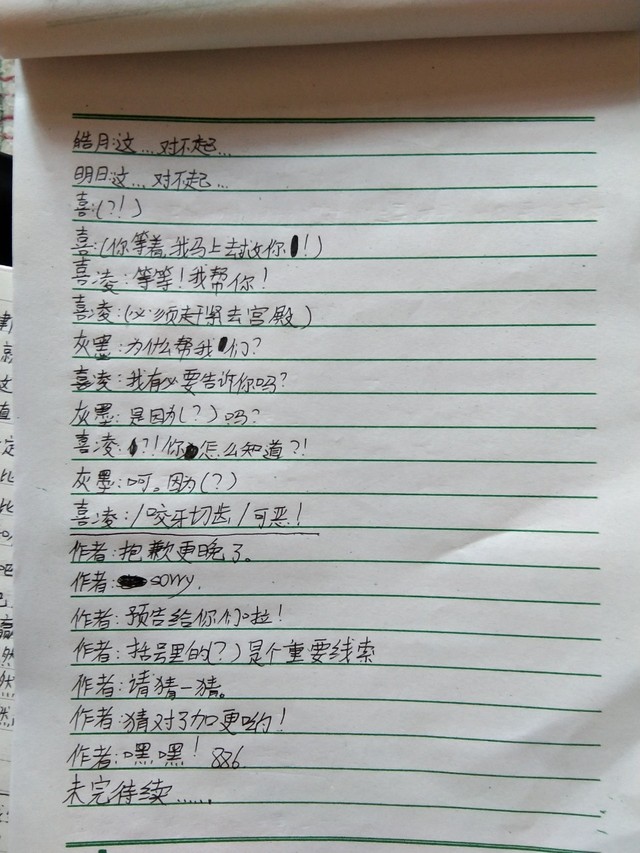 皓月:这...对不起...
明日:这...对不起...
喜:(?!)
喜:(你等着,我马上去救你!)
喜凌:等等!我帮你!
喜凌:(必须赶紧去宫殿)
灰墨:为什么帮我们?
喜凌:我有必要告诉你吗?
灰墨:是因为(?)吗?
喜凌:?!你怎么知道?!
灰墨:呵。因为(?)
喜凌:/咬牙切齿/可恶!
作者:抱歉更晚了。
作者:sorry.
作者:预告给你们啦!
作者:括号里的(?)是个重要线索
作者:请猜一猜。
作者:猜对了加更哟!
作者:嘿嘿!886
未完待续......